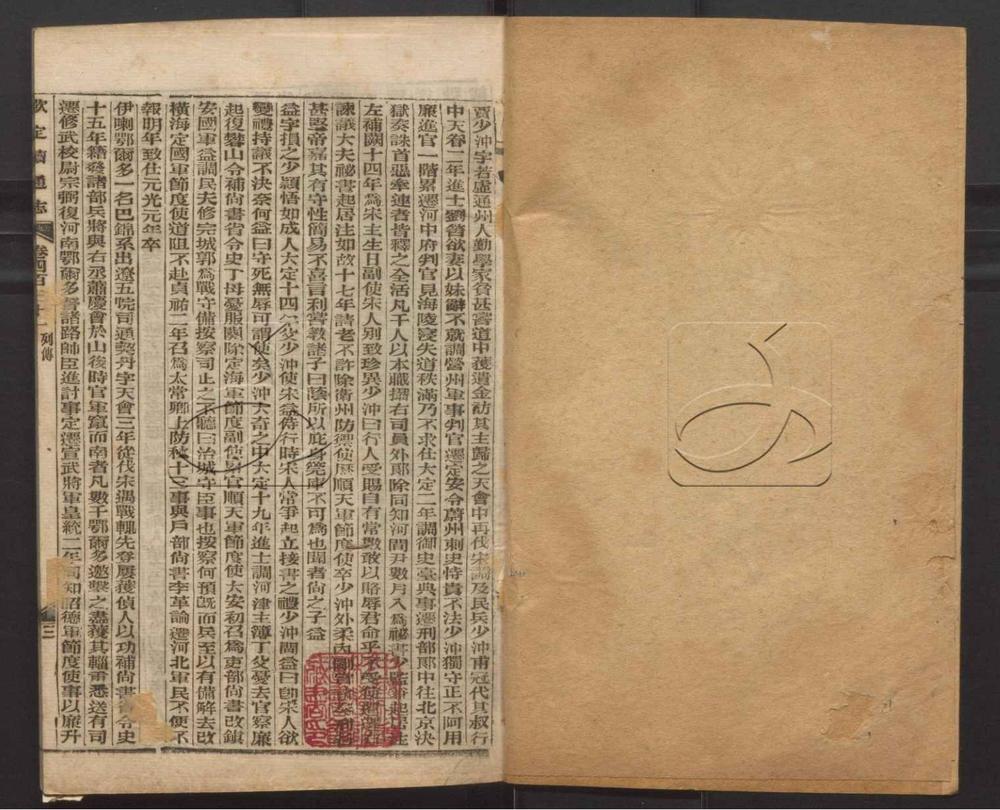 賈少沖字若虛通州人勤學家貧甚嘗道中獲遺金訪其主歸之天會中再伐宋調及民兵少沖甫冠代其叔行
中天眷二年進士劉筈欲妻以妹辭不就調營州軍事判官遷定安令蔚州刺史恃貴不法少沖獨守正不阿用
廉進官一階累遷河中府判官見海陵寖失道秩滿乃不求仕大定二年調御史臺典事遷刑部郎中往北京決
獄奏誅首惡牽連者皆釋之全活凡千人以本職攝右司員外郎除同知河間尹數月入為祕書少監兼起居注
左補闕十四年為宋主生日副使宋人別致珍異少沖曰行人受賜自有常數敢以賄辱君命乎不受使還遷右
諫議大夫祕書起居注如故十七年請老不許除衞州防禦使歷順天軍節度使卒少沖外柔內剛
甚堅帝嘉其有守性簡易不喜言利嘗教諸子曰蔭所以庇身筦庫不可為也聞者尚之子益
益字損之少穎悟如成人大定十四年父少沖使宋益侍行時宋人常爭起立接書之禮少沖問益曰即宋人欲
變禮持議不決奈何益曰守死無辱可謂使矣少沖大奇之中大定十九年進士調河津主簿丁父憂去官察廉
起復礬山令補尚書省令史丁母憂服闋除定海軍節度副使歷官順天軍節度使大安初召為吏部尚書改鎮
安國軍益調民夫修完城郭為戰守備按察司止之不聽曰治城守臣事也按察何預既而兵至以有備解去改
橫海定國軍節度使道阻不赴貞祐二年召為太常卿上防秋十三事與戶部尚書李革論遷河北軍民不便不
報明年致仕元光元年卒
伊喇鄂爾多一名巴錦系出遼五院司通契丹字天會三年從伐宋遇戰輒先登屢獲偵人以功補尚書省令史
十五年籍發諸部兵將與右丞蕭慶會於山後時官軍竄而南者凡數千鄂爾多邀擊之盡獲其輜重悉送有司
遷修武校尉宗弼復河南鄂爾多督諸路帥臣進討事定遷宣武將軍皇統二年同知昭德軍節度使事以廉升
欽定續通志 卷四百 列傳 三